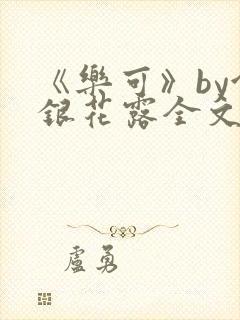 《樂可》by
銀花露全文
盧勇